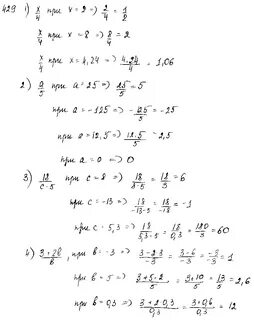 429 1) x/4 при x = 2 => 2/4 = 1/2
x/4 при x = 8 => 8/4 = 2
x/4 при x = 4,24 => 4.24/4 = 1,06
2) a/5 при a = 25 => 25/5 = 5
при a = -125 => -125/5 = -25
при a = 12,5 => 12.5/5 = 2,5
при a = 0 => 0
3) 18/c-5 при c = 8 => 18/8-5 = 18/3 = 6
при c = -13 => 18/-13-5 = 18/-18 = -1
при c = 5,3 => 18/5,3-5 = 18/0,3 = 180/3 = 60
4) 3+2b/b, при b = -3 => 3-2·3/-3 = 3-6/-3 = -3/-3 = 1
при b = 5 => 3+5·2/5 = 3+10/5 = 13/5 = 2,6
при b = 0,3 => 3+2·0,3/0,3 = 3+0,6/0,3 = 12